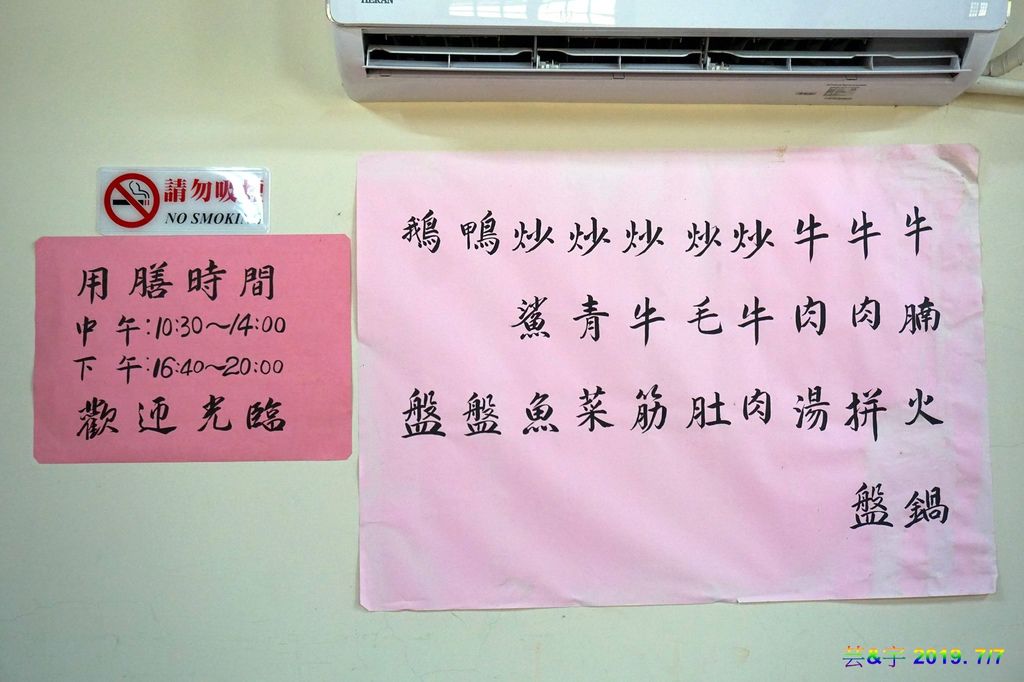 HERAN
請勿吸煙
NO SMOKING
用膳時間
中午:10:30~14:00
下午:16:40~20:00
歡迎光臨
牛腩火鍋
牛肉拼盤
牛肉湯
炒牛肉
炒毛肚
炒牛筋
炒青菜
炒鯊魚
鴨盤
鵝盤
芸&宇 2019. 7/7